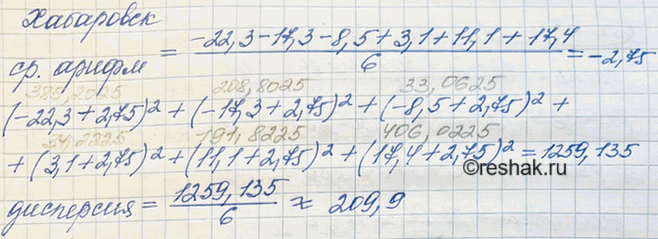 Хабаровск
ср. арифм = (-22,3-17,3-8,5+3,1+11,1+17,4)/6 = -2,75
385,2025 208,8025 33,0625
(-22,3+2,75)² + (-17,3+2,75)² + (-8,5+2,75)² +
34,2225 191,8225 406,0225
+ (3,1+2,75)² + (11,1+2,75)² + (17,4+2,75)² = 1259,135
©reshak.ru
дисперсия = 1259,135/6 ≈ 209,9